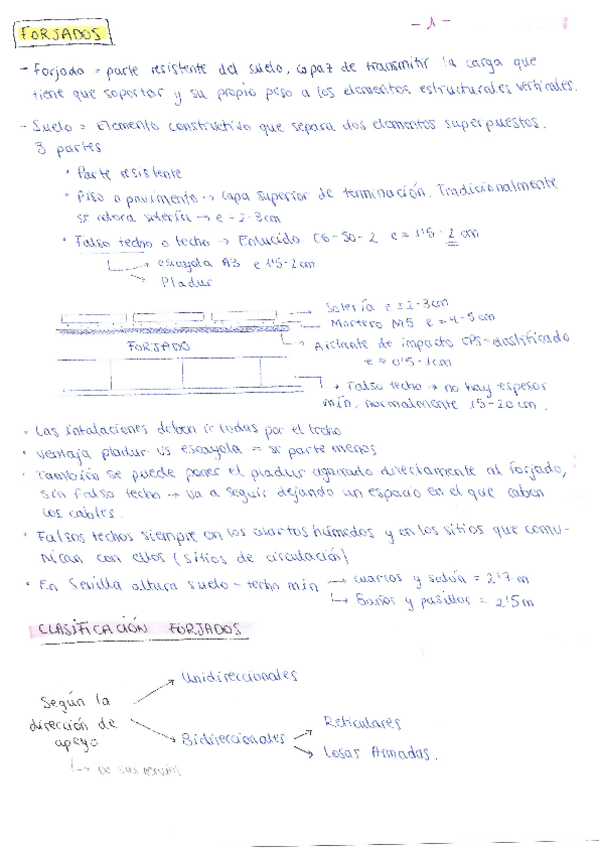 FORJADOS
- 1 -
- Forjado = parte resistente del suelo, capaz de transmitir la carga que
tiene que soportar y su propio peso a los elementos estructurales verticales.
- Suelo = Elemento constructivo que separa dos elementos superpuestos.
3 partes
• Parte resistente
• Piso o pavimento → capa superior de terminación. Tradicionalmente
se coloca solería → e = 2-3cm
• Falso techo o techo → Enlucido e = 1'5-2 cm
→ escayola A3 e 1'5-2cm
→ Pladur
Solería e = 2-3cm
Mortero M5 e = 4-5cm
FORJADO
Aislante de impacto EPS-elastificado
e = 0'5-1cm
→ Falso techo → no hay espesor
mín, normalmente 15-20cm.
• Las intalaciones deben ir todas por el techo
• Ventaja pladur vs escayola = se parte menos
• También se puede poner el pladur agarrado directamente al forjado,
sin falso techo → va a seguir dejando un espacio en el que caben
los cables.
• Falsos techos siempre en los cuartos húmedos y en los sitios que comu-
nican con ellos (sitios de circulación)
• En Sevilla altura suelo-techo min → cuartos y salón = 2'7m
→ Baños y pasillos = 2'5m
CLASIFICACIÓN FORJADOS
Según la
dirección de
apeyo
→ de sus nervios
→ Unidireccionales
→ Bidireccionales
→ Reticulares
→ Losas Armadas.